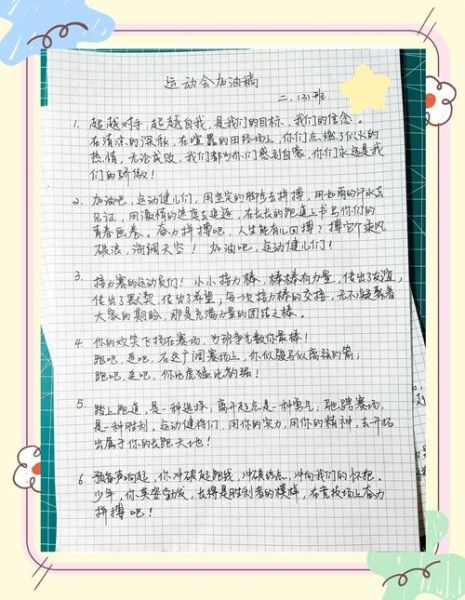 运动会加油稿
二.(3)班
1. 超越对手,超越自我,是我们的目标、我们的信念。
在清凉的深秋,在喧嚣的田径场上,你们点燃了似火的
热情,无论成败,我们都为你们感到自豪,你们永远是我
们的骄傲!
2. 加油吧,运动健儿们,用坚实的脚步去拼搏,用如雨的汗水去
见证,用激情的速度去追逐,在长长的跑道上书写你们的
青春画卷。奋力拼搏吧,人生能有几回搏?搏它个乘风
破浪,海阔天空!加油吧,运动健儿们!
3. 接力赛的运动员们!小小接力棒,棒棒有力量,传出了友谊,
传出了默契,传出了希望,每一次接力棒的交接,无不凝聚着
大家的期盼,那是充满力量的团结之棒。
4. 你的欢笑飞扬在赛场,为班争光数你最棒!
跑吧,追吧,在这广阔赛场上,你似骏马似离弦的箭,
跑吧,追吧,你比虎猛比豹强!
5. 踏上跑道,是一种选择,离开起点是一种勇气,驰骋赛场,
是一种胜利,运动健将们,用你的实力,用你的精神,去开拓
出属于你的长跑天地!
6. 预备声响起,你冲破起跑线,冲破终点,冲向我们的怀抱。
少年,你英姿勃发,长得是胜利者的模样,在竞技场上奋力
拼搏吧!